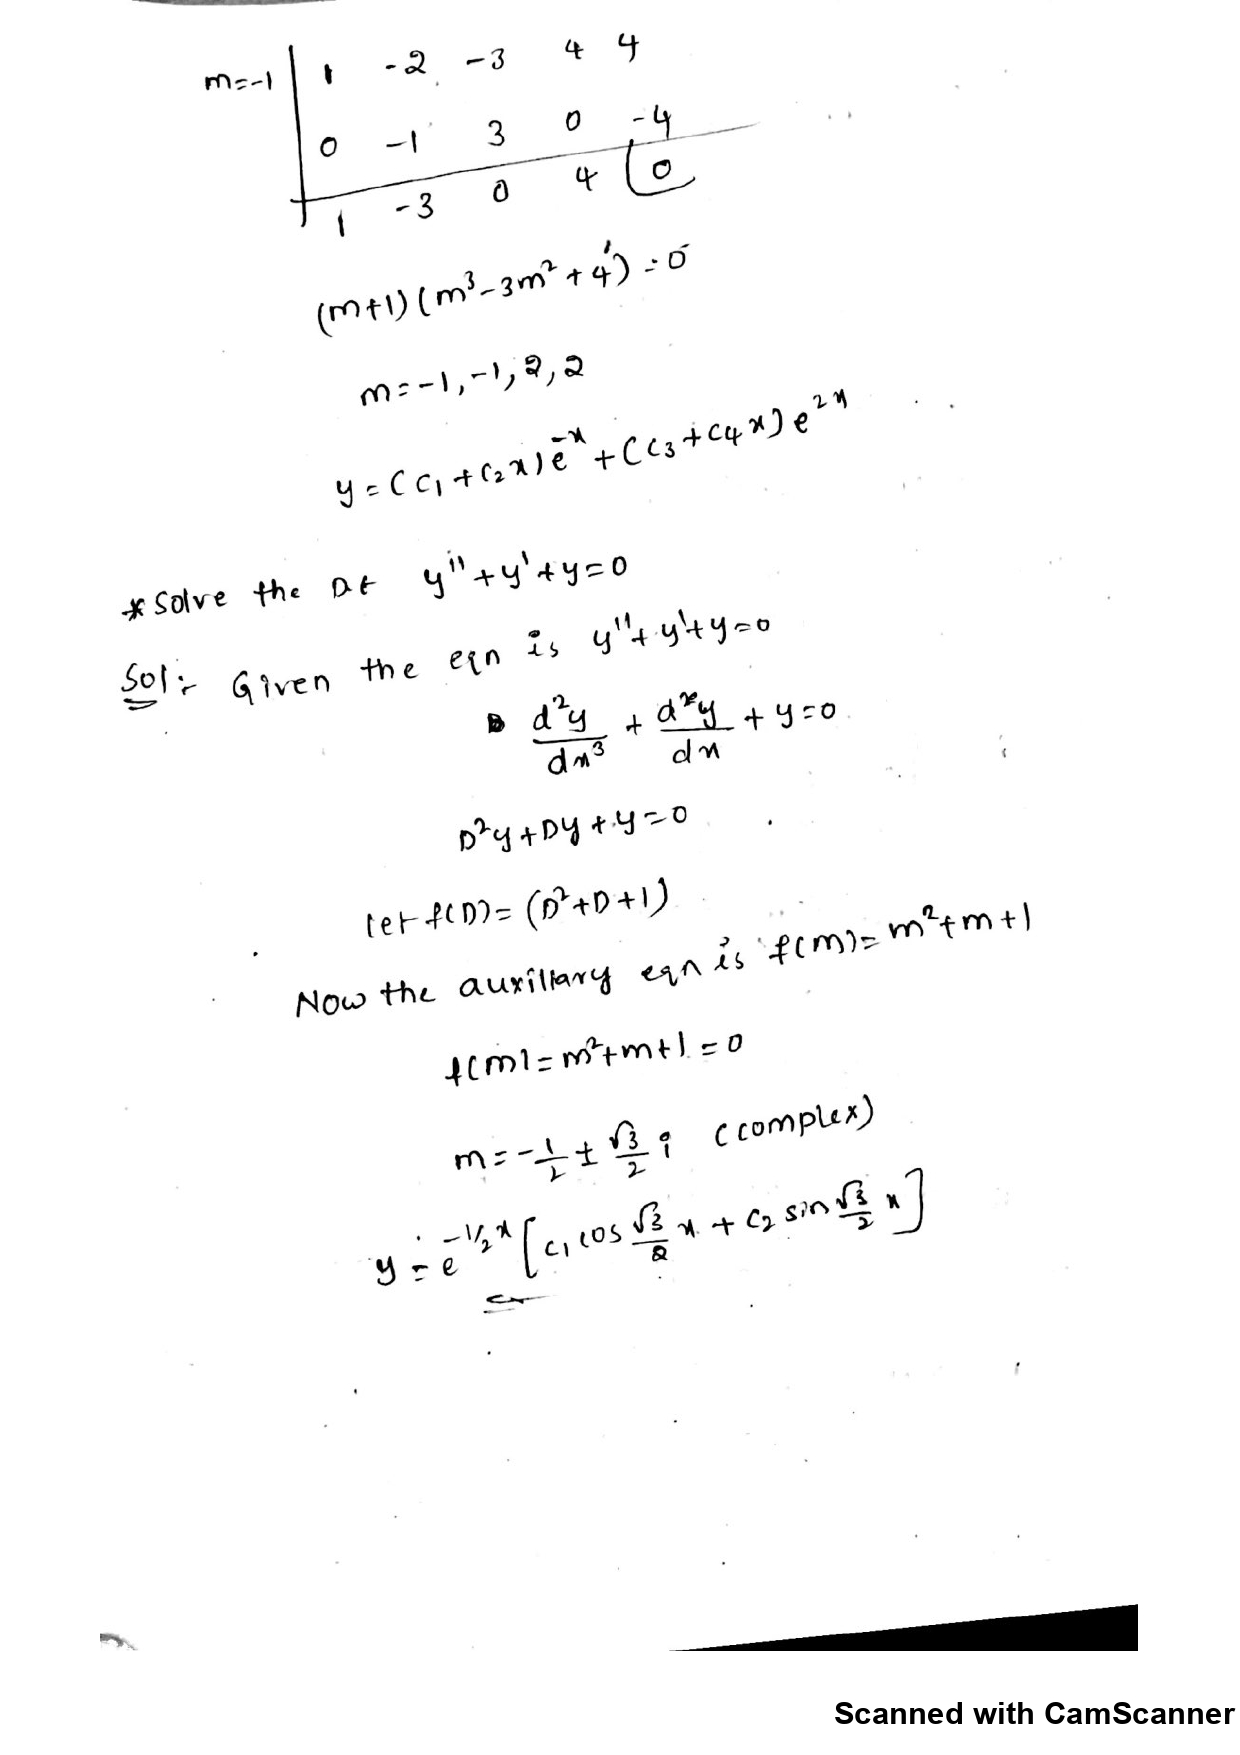 m=-1 | 1 -2 -3 4 4
0 -1 3 0 -4
1 -3 0 4 0
(m+1)(m³-3m²+4)=0
m=-1,-1,2,2
y=(c₁+c₂x)e⁻ˣ+(c₃+c₄x)e²ˣ
* Solve the DE y''+y'+y=0
Sol:- Given the eqn is y''+y'+y=0
d²y/dx³ + dy/dx + y=0
D²y+Dy+y=0
let f(D)=(D²+D+1)
Now the auxillary eqn is f(m)=m²+m+1
f(m)=m²+m+1=0
m=-1/2 ± √3/2 i (complex)
y=e^(-1/2 x)[c₁ cos √3/2 x + c₂ sin √3/2 x]
Scanned with CamScanner